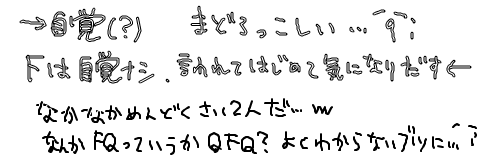 →自覚(?) まどろっこしい…^q^;
Fは自覚ナシ、言われてはじめて気になりだす←
なかなかめんどくさい2人だ…w
なんかFQっていうかQFQ?よくわからないブツに…^q^;